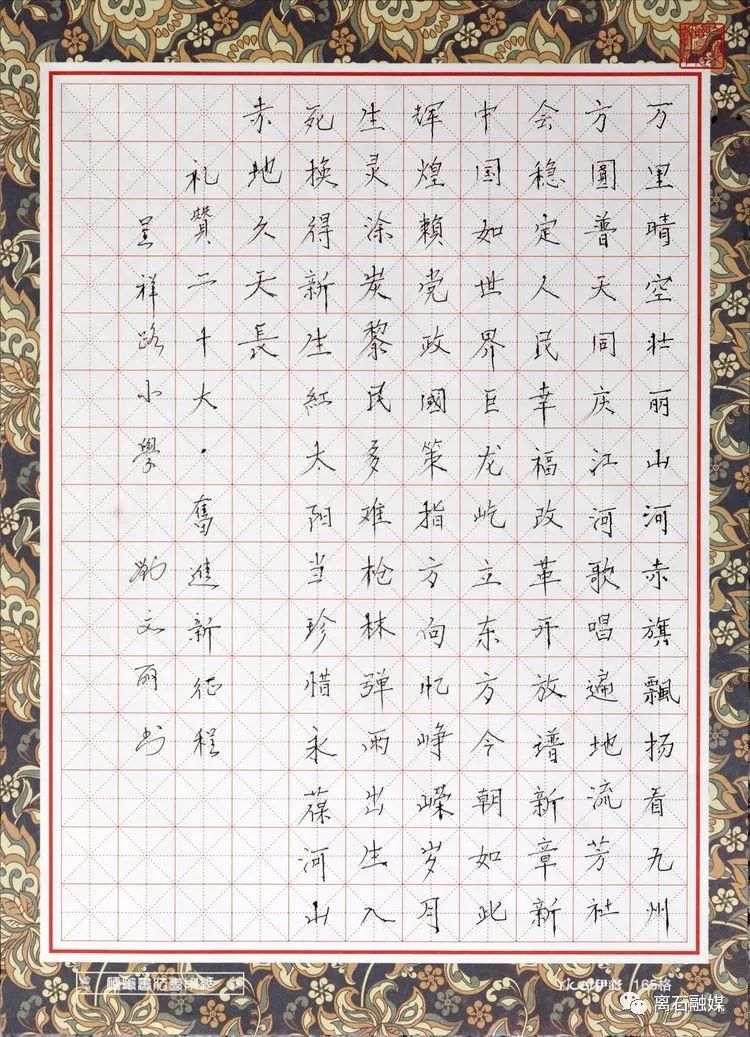 万里晴空壮丽山河赤旗飘扬看九州
方圓普天同庆江河歌唱遍地流芳社
会稳定人民幸福改革开放谱新章新
中国如世界巨龙屹立东方今朝如此
辉煌賴党政國策指方向忆峥嵘岁月
生灵涂炭黎民多难枪林弹雨出生入
死换得新生紅太阳当珍惜永葆河山
赤地久天長
礼贊二十大·奮進新征程
呈祥路小學 文丽书
伊彩 165格
离石融媒